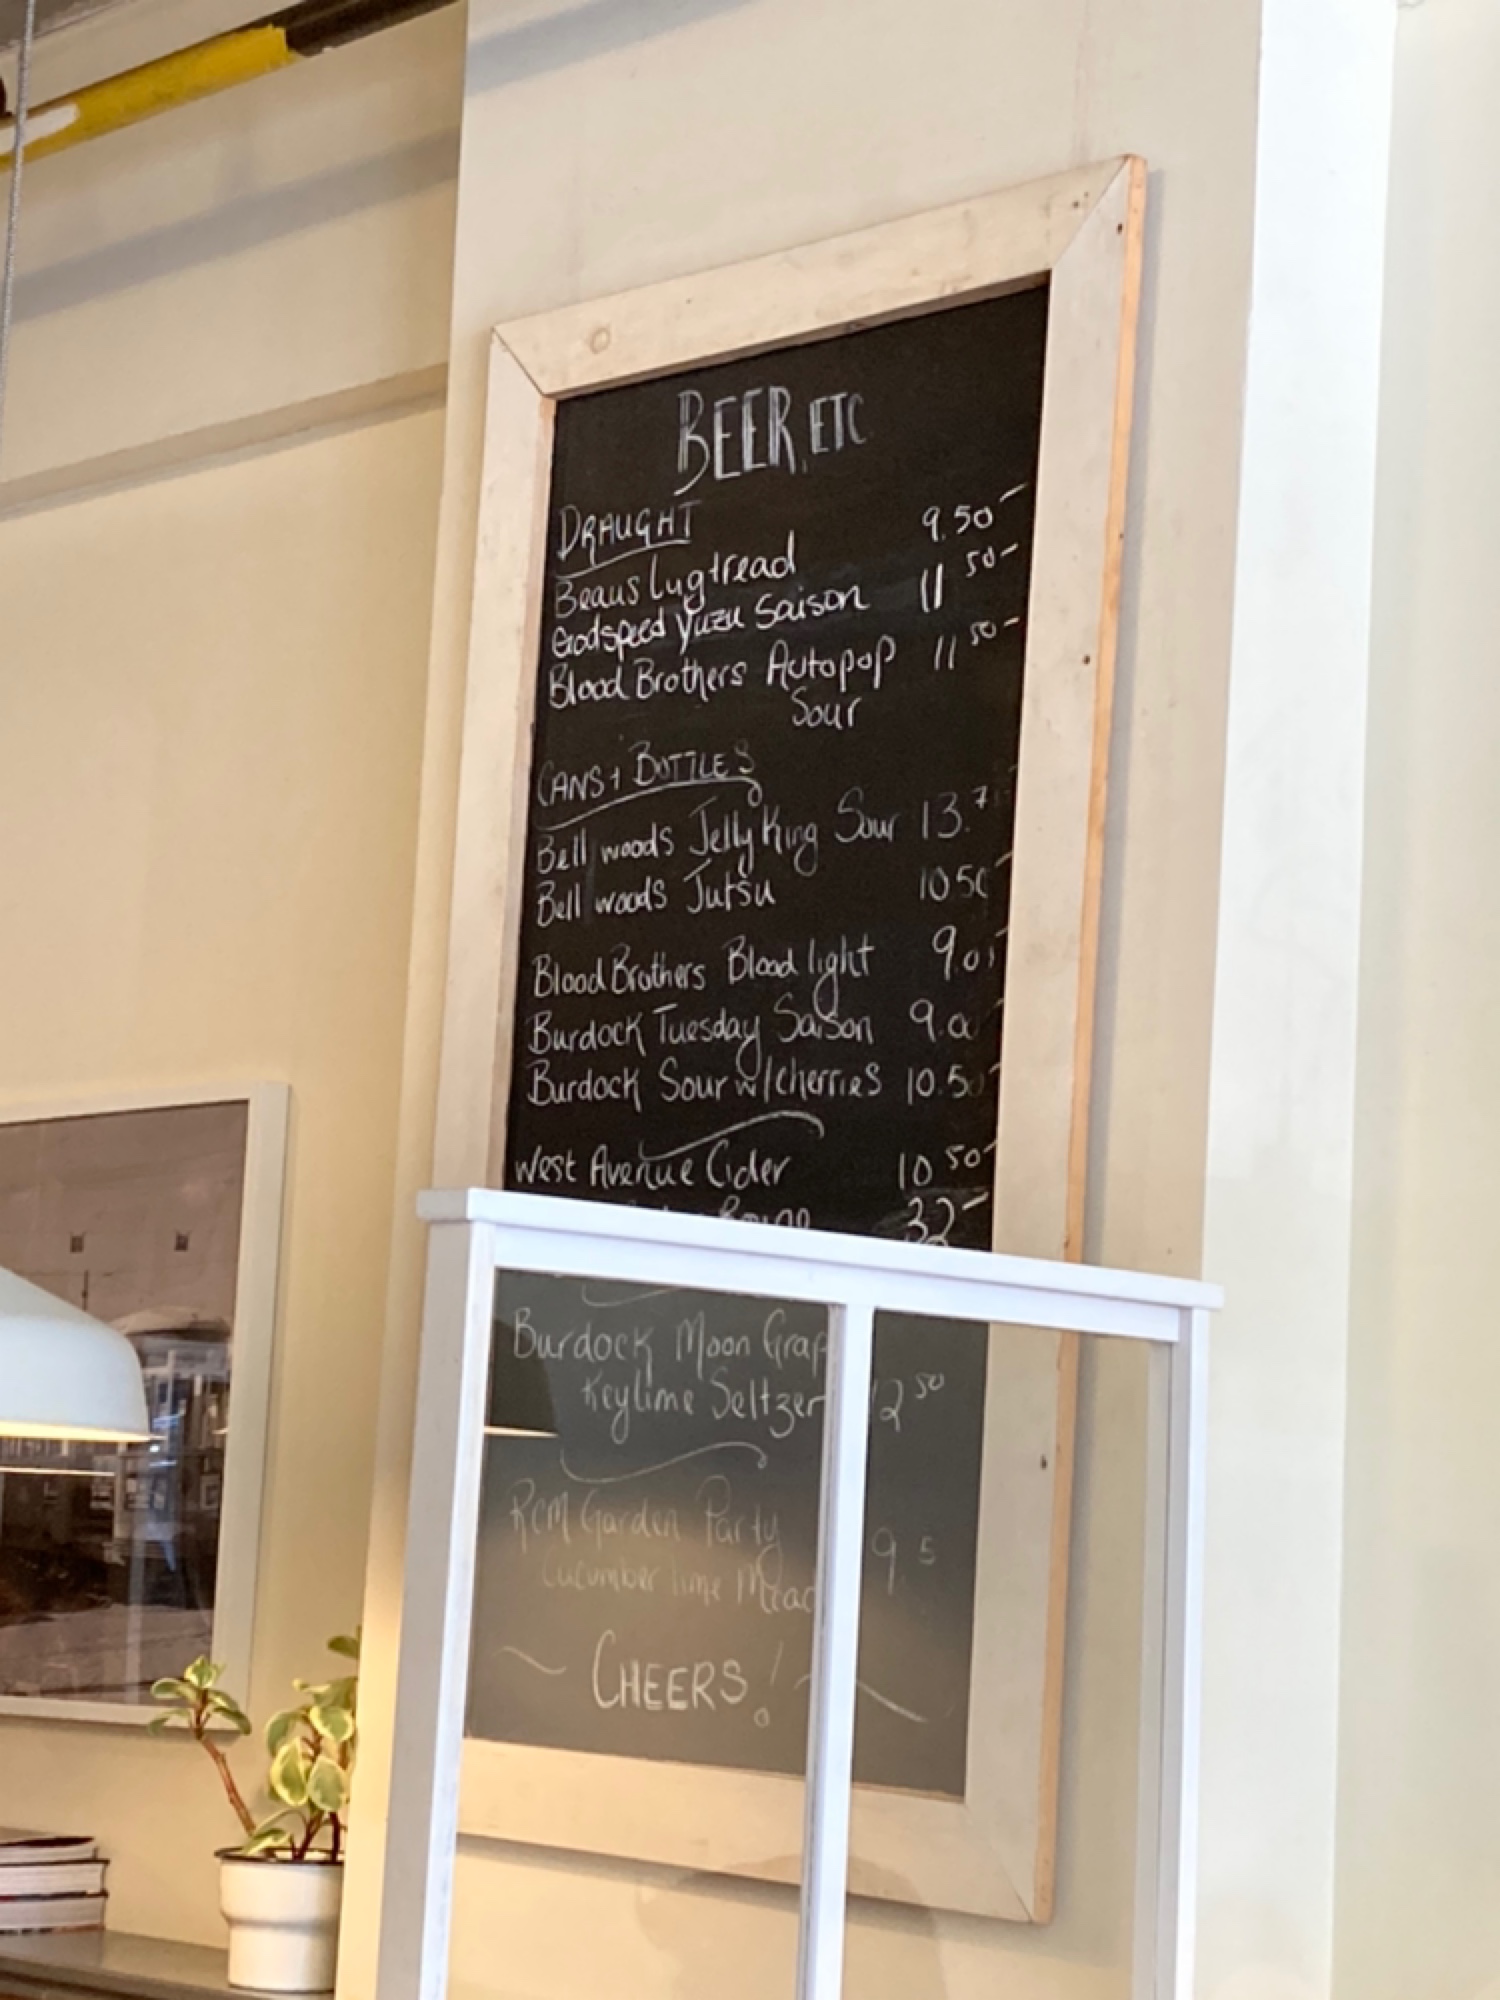 BEER, ETC
DRAUGHT
Beaus Lugtread 9.50
Godspeed Yuzu Saison 11 50
Blood Brothers Autopop 11 50
Sour
CANS + BOTTLES
Bellwoods Jelly King Sour 13.
Bellwoods Jutsu 10.50
Blood Brothers Blood light 9.0
Burdock Tuesday Saison 9.0
Burdock Sour w/cherries 10.50
West Avenue Cider 10 50
32
Burdock Moon Grap
Keylime Seltzer 12 50
RCM Garden Party
Cucumber lime Mead 9.5
CHEERS!